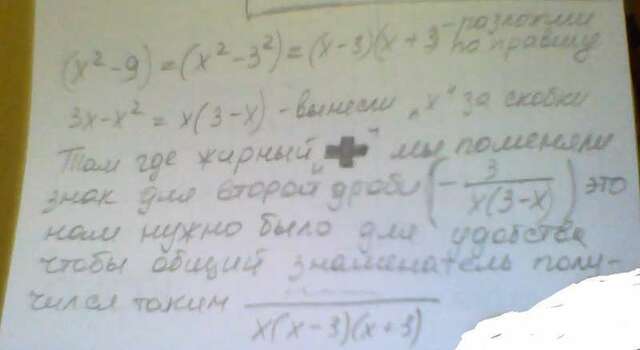 (x²-9) = (x²-3²) = (x-3)(x+3 - разложили по правилу
3x-x² = x(3-x) - вынесли „x" за скобки
Там где жирный „+" мы поменяли
знак для второй дроби (- 3/x(3-x)) это
нам нужно было для удобства
чтобы общий знаменатель полу-
чился таким ——/x(x-3)(x+3)